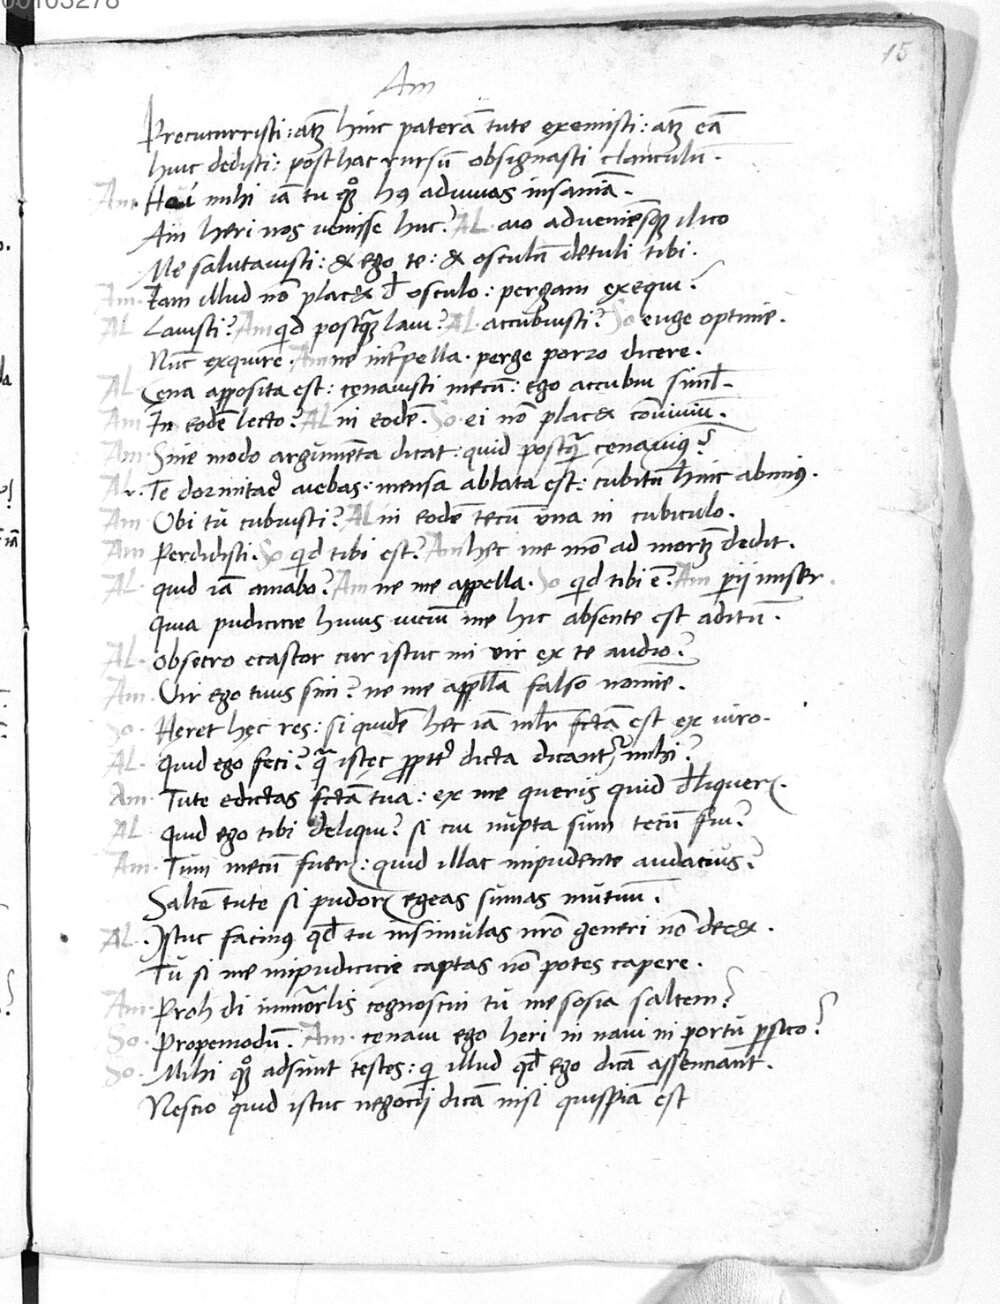 00103278
15
Am
Precucurristi: atqꝫ hinc paterā tute exemisti: atqꝫ eā
huic dedisti: post hac rursū obsignasti clanculū.
Am. Heu mihi iā tu quoqꝫ hꝰ adiuuas insaniā.
Ain heri nos uenisse huc? AL aio adueniēsqꝫ ilico
Me salutauisti: & ego te: & osculū detuli tibi.
Am. Iam illud nō placet đ osculo: pergam exequi?
AL Lauisti? Am qd postquā laui? AL accubuisti? So euge optime.
Nūc exquire. Am ne int'pella. perge porro dicere.
AL Cena apposita est: cęnauisti mecū: ego accubui siml̄.
Am In eodē lecto? AL in eodē. So ei nō placet cōuiuiū.
Am. Sine modo argūmēta dicat: quid postquā cęnauiꝰ?
AL. Te dormitare aiebas: mensa ablata est: cubitū hinc abimꝰ.
Am Vbi tū cubuisti? AL in eodē tecū una in cubiculo.
Am Perdidisti. So qd tibi est? Am hęc me mō ad mortē dedit.
AL. quid iā amabo? Am ne me appella. So qd tibi ē? Am p̄ii miser.
Quia pudicicie huius uiciū me hic absente est aditū.
AL. Obsecro ecastor cur istuc mi uir ex te audio?
Am. Vir ego tuus sim? ne me appellā falso nomie.
So. Heret hęc res: si quidē hęc iā mlr̄ fctā est ex uiro.
AL. Quid ego feci? qā istęc ꝓpt' dicta dicant' mihi?
Am. Tute edictas fctā tua: ex me queris quid đliquer.
AL Quid ego tibi deliqui? si cui nūpta sūm tecū fui?
Am. Tūm mecū fuer: quid illac impudente audaciūs?
Saltē tute si pudor egeas sūmas mutuū.
AL. Istuc facinꝰ qđ tu insimūlas nrō generi nō decet.
Tū si me impudicicie captas nō potes capere.
Am. Proh di immorlis cognoscin tū me sosia saltem?
So. Propemodū. Am. cenaui ego heri in naui in portū ꝑsico?
So. Mihi quoqꝫ adsūnt testes: qi illud qđ ego dicā assenciant.
Nescio quid istuc negocij dicā nisi quispiā est